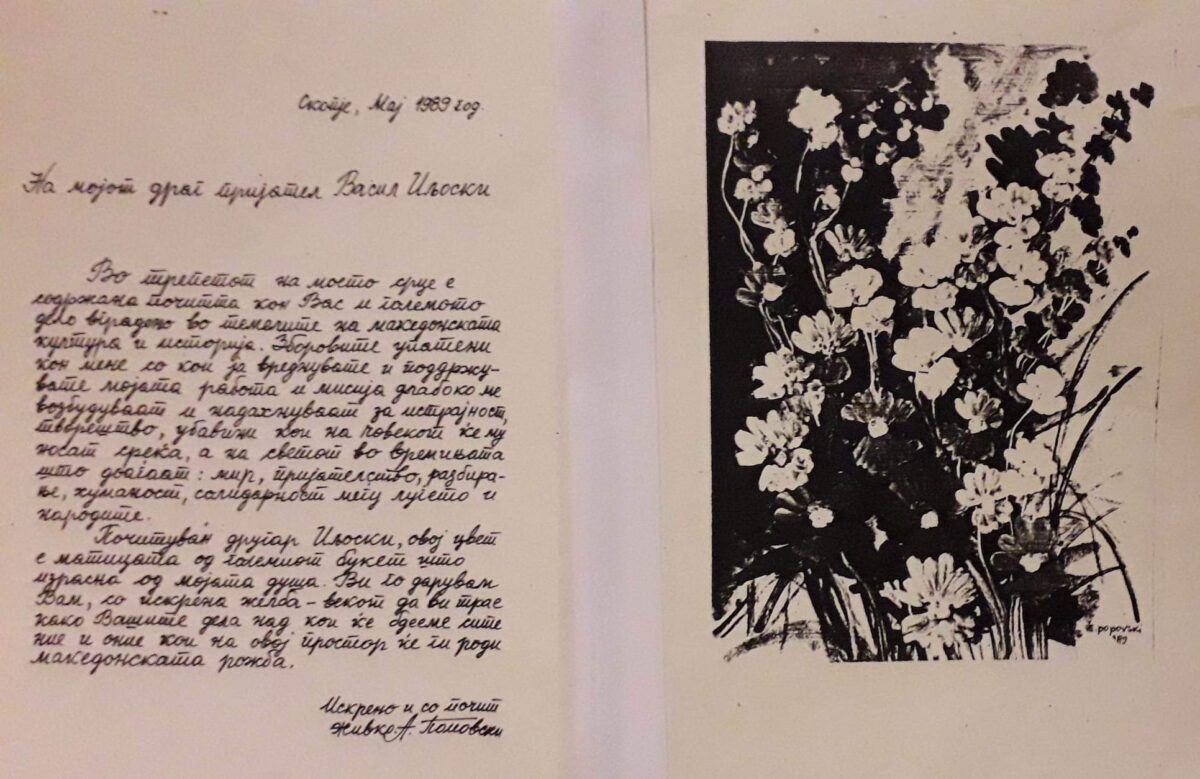 Скопје, Мај 1989 год.
На мојот драг пријател Васил Иљоски
Во трепетот на моето срце е
содржана почитта кон Вас и големото
дело вградено во темелите на македонската
култура и историја. Зборовите упатени
кон мене со кои ја вреднувате и поддржу-
вате мојата работа и мисија длабоко ме
возбудуваат и надахнуваат за истрајност,
творештво, убавини кои на човекот ќе му
носат среќа, а на светот во времињата
што доаѓаат: мир, пријателство, разбира-
ње, хуманост, солидарност меѓу луѓето и
народите.
Почитуван другар Иљоски, овој цвет
е матицата од големиот букет што
израсна од мојата душа. Ви го дарувам
Вам, со искрена желба - векот да ви трае
како Вашите дела над кои ќе бдееме сите
ние и оние кои на овој простор ќе ги роди
македонската рожба.
Искрено и со почит
Живко А. Поповски
popovski
'89